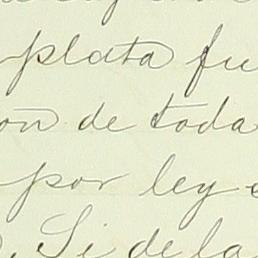 plata fu
on de toda
por ley
Si de la